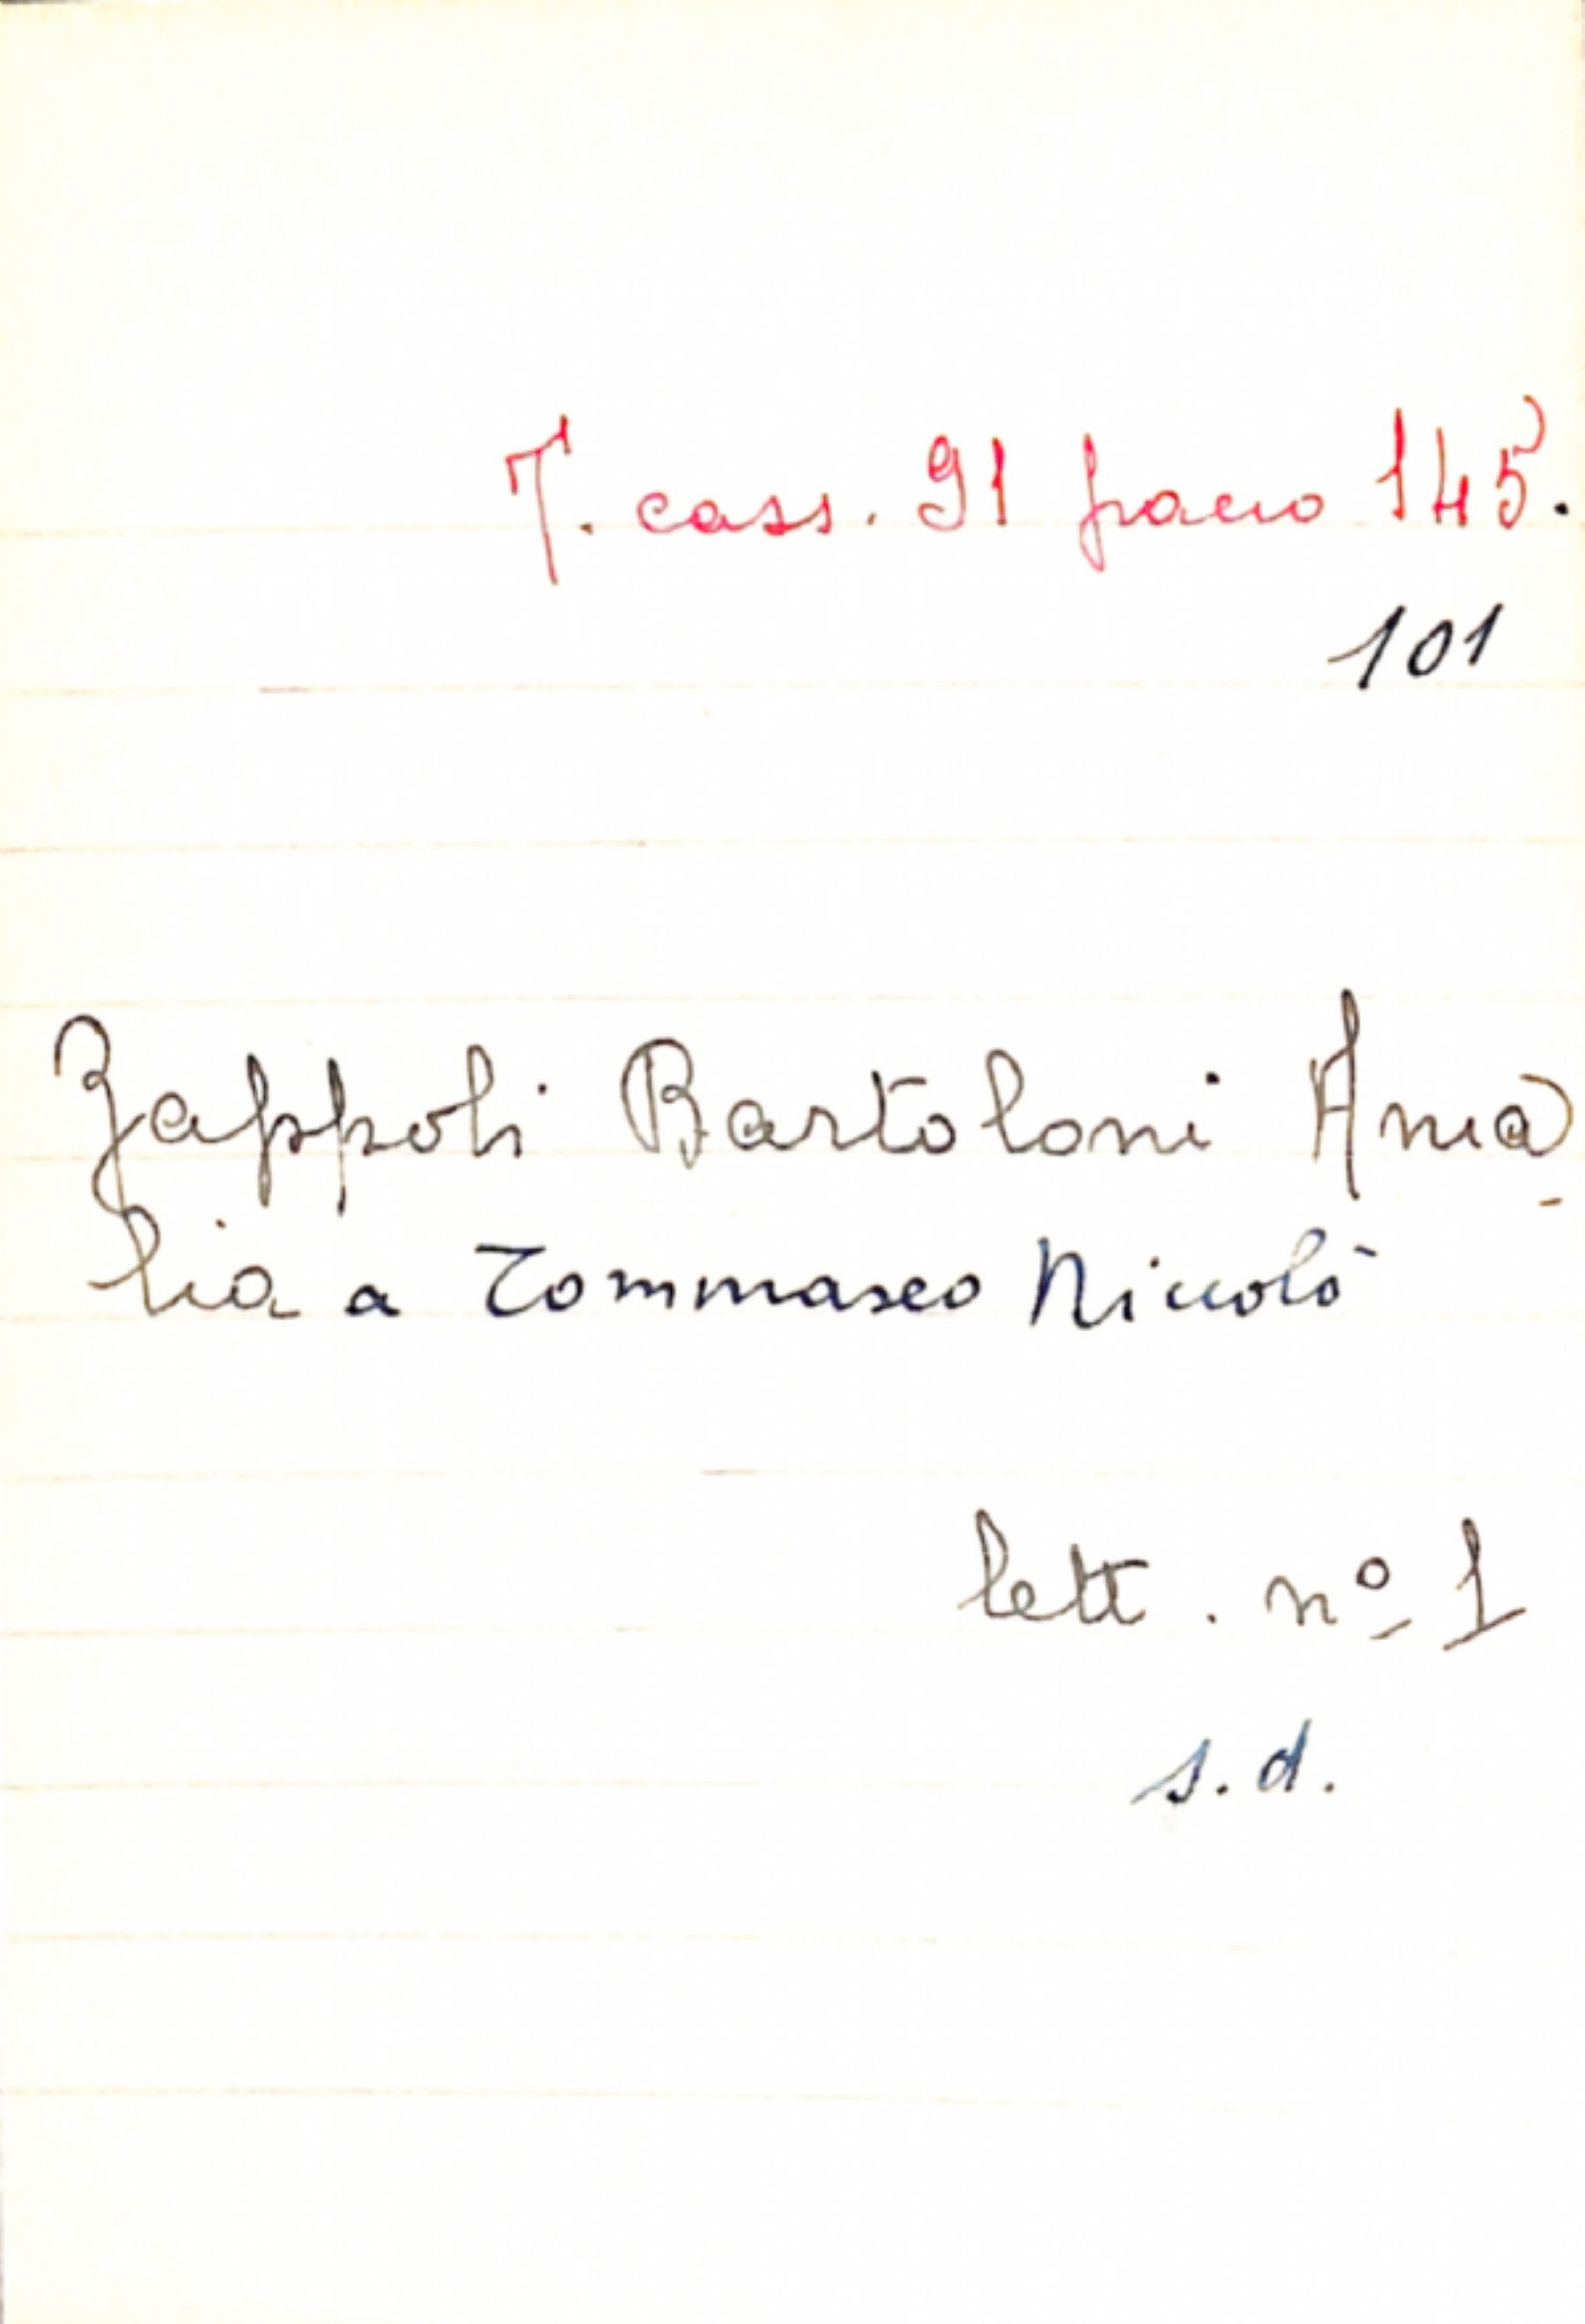 T. cass. 91 pacco 145.
101
Zappoli Bartoloni Ama
lia a Tommaseo Niccolò
lett. nº 1
s.d.